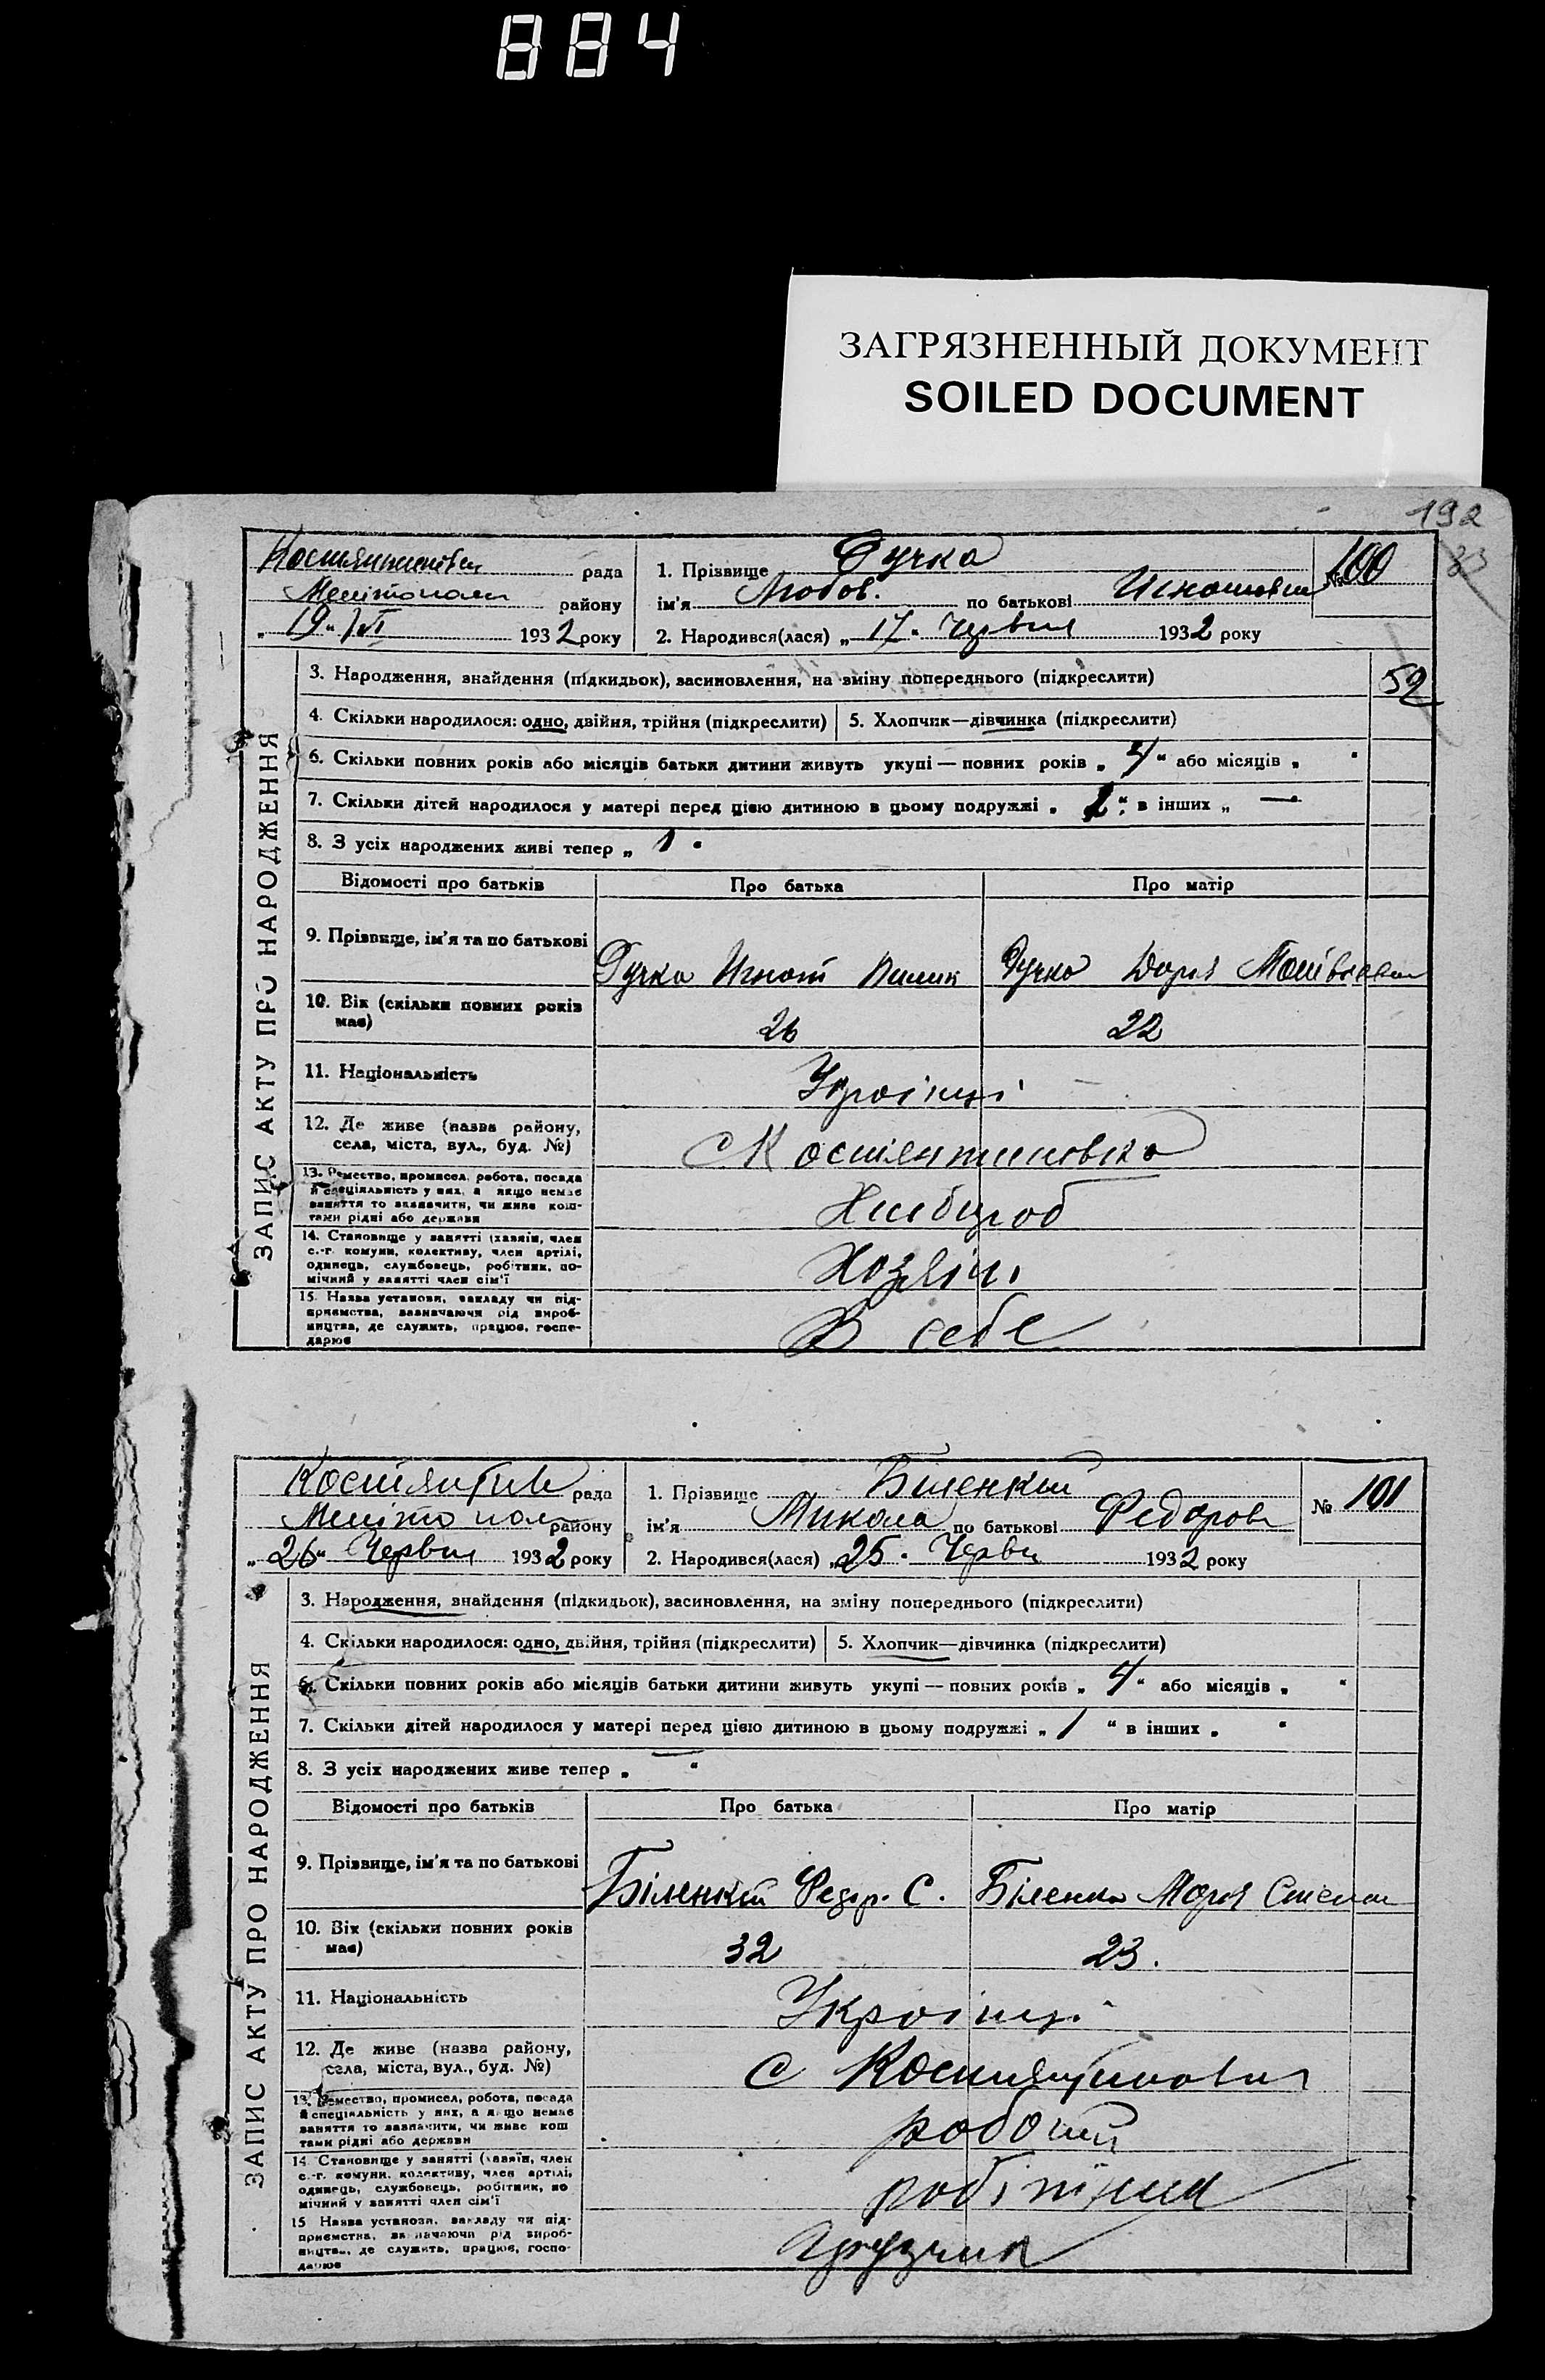 884
ЗАГРЯЗНЕННЫЙ ДОКУМЕНТ
SOILED DOCUMENT
192
33
рада 1. Прізвище Гучка № 100
району ім'я Любов. по батькові
„ 19 “ VI 1932 року 2. Народився(лася) „ 17 “ Червня 1932 року
3. Народження, знайдення (підкидьок), засиновлення, на зміну попереднього (підкреслити) 52
4. Скільки народилося: одно, двійня, трійня (підкреслити) 5. Хлопчик—дівчинка (підкреслити)
6. Скільки повних років або місяців батьки дитини живуть укупі — повних років „ 4 “ або місяців „ “
7. Скільки дітей народилося у матері перед цією дитиною в цьому подружжі „ “ в інших „ — “
8. З усіх народжених живі тепер „ 1 “
Відомості про батьків Про батька Про матір
9. Прізвище, ім'я та по батькові
Гучка Игнат Гучка Дарья
10. Вік (скільки повних років має)
26 22
11. Національність
Українці
12. Де живе (назва району, села, міста, вул., буд. №)
С Костянтиновка
13. Ремество, промисел, робота, посада й спеціяльність у них, а якщо немає заняття то зазначити, чи живе коштами рідні або держави
Хлибороб
14. Становище у занятті (хазяїн, член с.-г. комуни, колективу, член артілі, одинець, службовець, робітник, помічний у занятті член сім'ї
Хозяіни
15. Назва установи, закладу чи підприємства, зазначаючи рід виробництва, де служить, працює, господарює
В себе
ЗАПИС АКТУ ПРО НАРОДЖЕННЯ
Костянтин рада 1. Прізвище Біленкий № 101
району ім'я Микола по батькові Федоров
„ 26 “ Червня 1932 року 2. Народився(лася) „ 25 “ Червня 1932 року
3. Народження, знайдення (підкидьок), засиновлення, на зміну попереднього (підкреслити)
4. Скільки народилося: одно, двійня, трійня (підкреслити) 5. Хлопчик—дівчинка (підкреслити)
6. Скільки повних років або місяців батьки дитини живуть укупі — повних років „ 4 “ або місяців „ “
7. Скільки дітей народилося у матері перед цією дитиною в цьому подружжі „ 1 “ в інших „ “
8. З усіх народжених живе тепер „ — “
Відомості про батьків Про батька Про матір
9. Прізвище, ім'я та по батькові
Біленкий Федор. С. Біленка Мария Степан
10. Вік (скільки повних років має)
32 23.
11. Національність
Українці
12. Де живе (назва району, села, міста, вул., буд. №)
С Костянтиновка
13. Ремество, промисел, робота, посада й спеціяльність у них, а якщо немає заняття то зазначити, чи живе коштами рідні або держави
робочий
14. Становище у занятті (хазяїн, член с.-г. комуни, колективу, член артілі, одинець, службовець, робітник, помічний у занятті член сім'ї
робітник
15. Назва установи, закладу чи підприємства, зазначаючи рід виробництва, де служить, працює, господарює
Грузчик
ЗАПИС АКТУ ПРО НАРОДЖЕННЯ